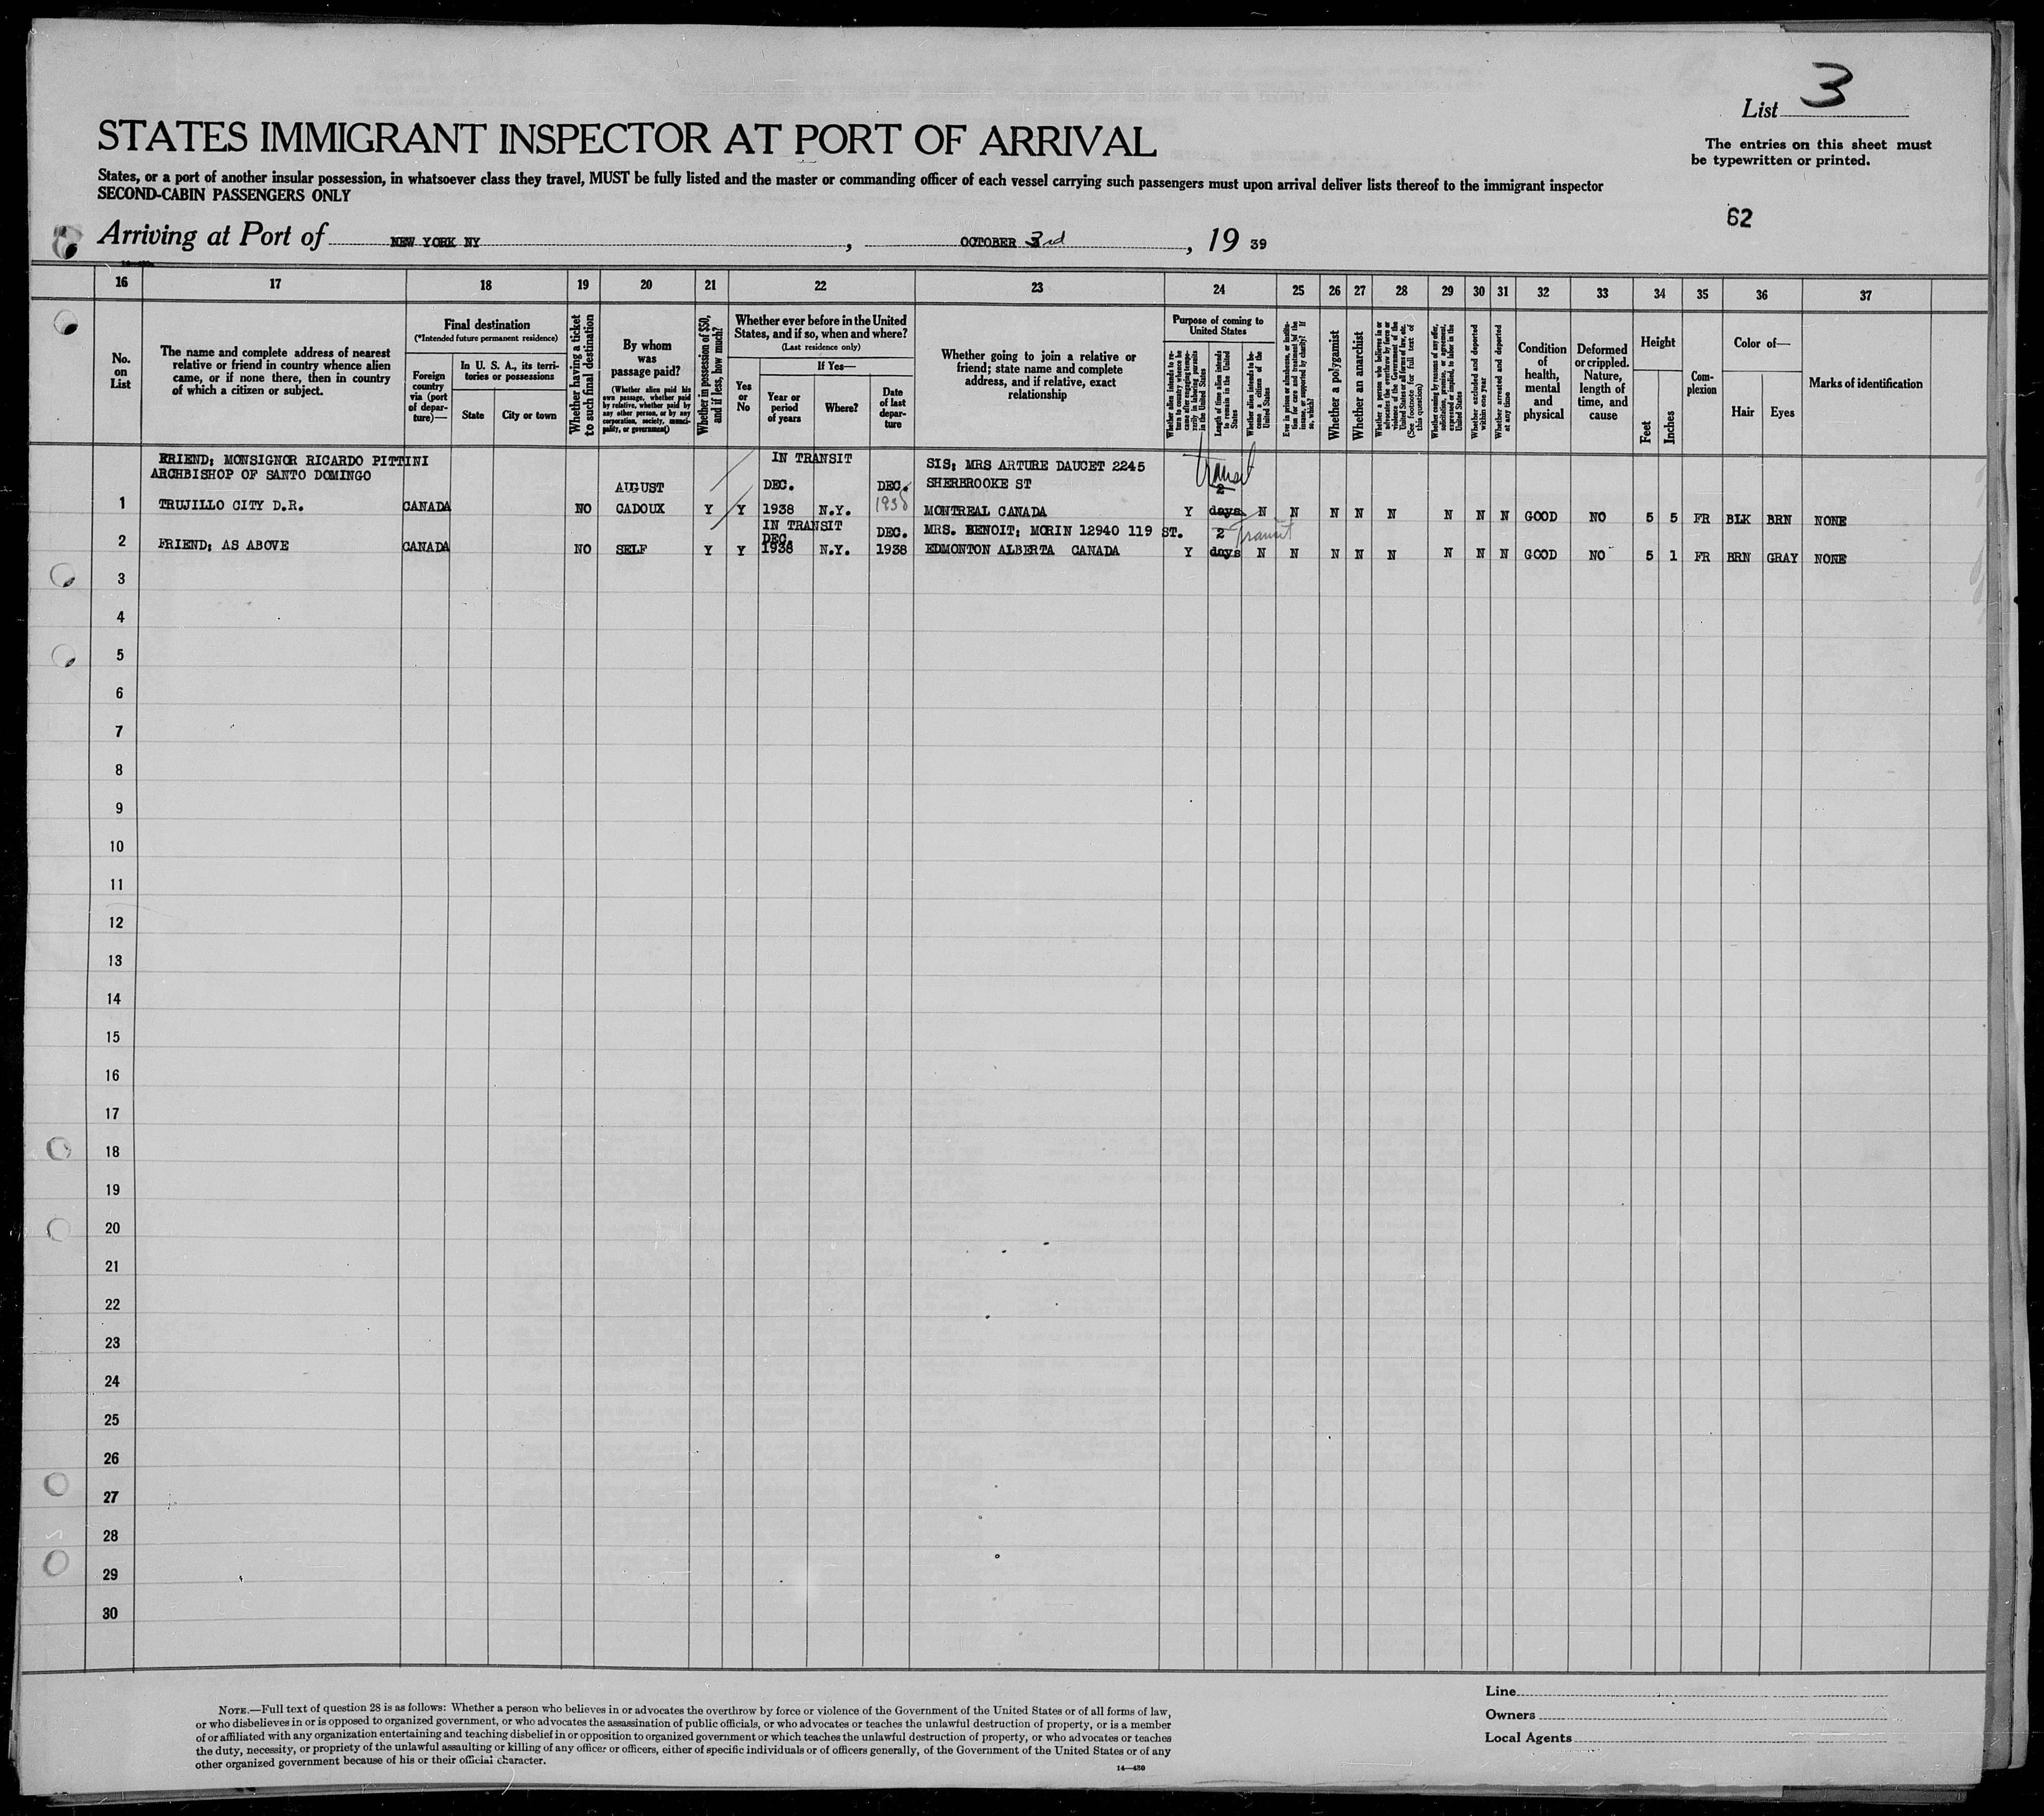 List 3
The entries on this sheet must
be typewritten or printed.
STATES IMMIGRANT INSPECTOR AT PORT OF ARRIVAL
States, or a port of another insular possession, in whatsoever class they travel, MUST be fully listed and the master or commanding officer of each vessel carrying such passengers must upon arrival deliver lists thereof to the immigrant inspector
SECOND-CABIN PASSENGERS ONLY
62
Arriving at Port of NEW YORK NY, OCTOBER 3rd, 19 39
16 17 18 19 20 21 22 23 24 25 26 27 28 29 30 31 32 33 34 35 36 37
No.
on
List
The name and complete address of nearest
relative or friend in country whence alien
came, or if none there, then in country
of which a citizen or subject.
Final destination
(*Intended future permanent residence)
Foreign
country
via (port
of depar-
ture)—
In U. S. A., its terri-
tories or possessions
State
City or town
Whether having a ticket
to such final destination
By whom
was
passage paid?
(Whether alien paid his
own passage, whether paid
by relative, whether paid by
any other person, or by any
corporation, society, munici-
pality, or government)
Whether in possession of $50,
and if less, how much?
Whether ever before in the United
States, and if so, when and where?
(Last residence only)
Yes
or
No
If Yes—
Year or
period
of years
Where?
Date
of last
depar-
ture
Whether going to join a relative or
friend; state name and complete
address, and if relative, exact
relationship
Purpose of coming to
United States
Whether alien intends to re-
turn to country whence he
came after engaging tempo-
rarily in laboring pursuits
in the United States
Length of time alien intends
to remain in the United
States
Whether alien intends to be-
come a citizen of the
United States
Ever in prison or almshouse, or institu-
tion for care and treatment of the
insane, or supported by charity? If
so, which?
Whether a polygamist
Whether an anarchist
Whether a person who believes in or
advocates the overthrow by force or
violence of the Government of the
United States or all forms of law, etc.
(See footnote for full text of
this question)
Whether coming by reasons of any offer,
solicitation, promise, or agreement,
expressed or implied, to labor in the
United States
Whether excluded and deported
within one year
Whether arrested and deported
at any time
Condition
of
health,
mental
and
physical
Deformed
or crippled.
Nature,
length of
time, and
cause
Height
Feet
Inches
Com-
plexion
Color of—
Hair
Eyes
Marks of identification
FRIEND; MONSIGNOR RICARDO PITTINI IN TRANSIT SIS; MRS ARTURE DAUCET 2245 transit
ARCHBISHOP OF SANTO DOMINGO AUGUST DEC. DEC. SHERBROOKE ST 2
1 TRUJILLO CITY D.R. CANADA NO CADOUX Y Y 1938 N.Y. 1938 MONTREAL CANADA Y days N N N N N N N N GOOD NO 5 5 FR BLK BRN NONE
IN TRANSIT DEC. MRS. BENOIT; MORIN 12940 119 ST. 2 transit
DEC.
2 FRIEND; AS ABOVE CANADA NO SELF Y Y 1938 N.Y. 1938 EDMONTON ALBERTA CANADA Y days N N N N N N N N GOOD NO 5 1 FR BRN GRAY NONE
3
4
5
6
7
8
9
10
11
12
13
14
15
16
17
18
19
20
21
22
23
24
25
26
27
28
29
30
NOTE.—Full text of question 28 is as follows: Whether a person who believes in or advocates the overthrow by force or violence of the Government of the United States or of all forms of law,
or who disbelieves in or is opposed to organized government, or who advocates the assassination of public officials, or who advocates or teaches the unlawful destruction of property, or is a member
of or affiliated with any organization entertaining and teaching disbelief in or opposition to organized government or which teaches the unlawful destruction of property, or who advocates or teaches
the duty, necessity, or propriety of the unlawful assaulting or killing of any officer or officers, either of specific individuals or of officers generally, of the Government of the United States or of any
other organized government because of his or their official character.
14—430
Line
Owners
Local Agents